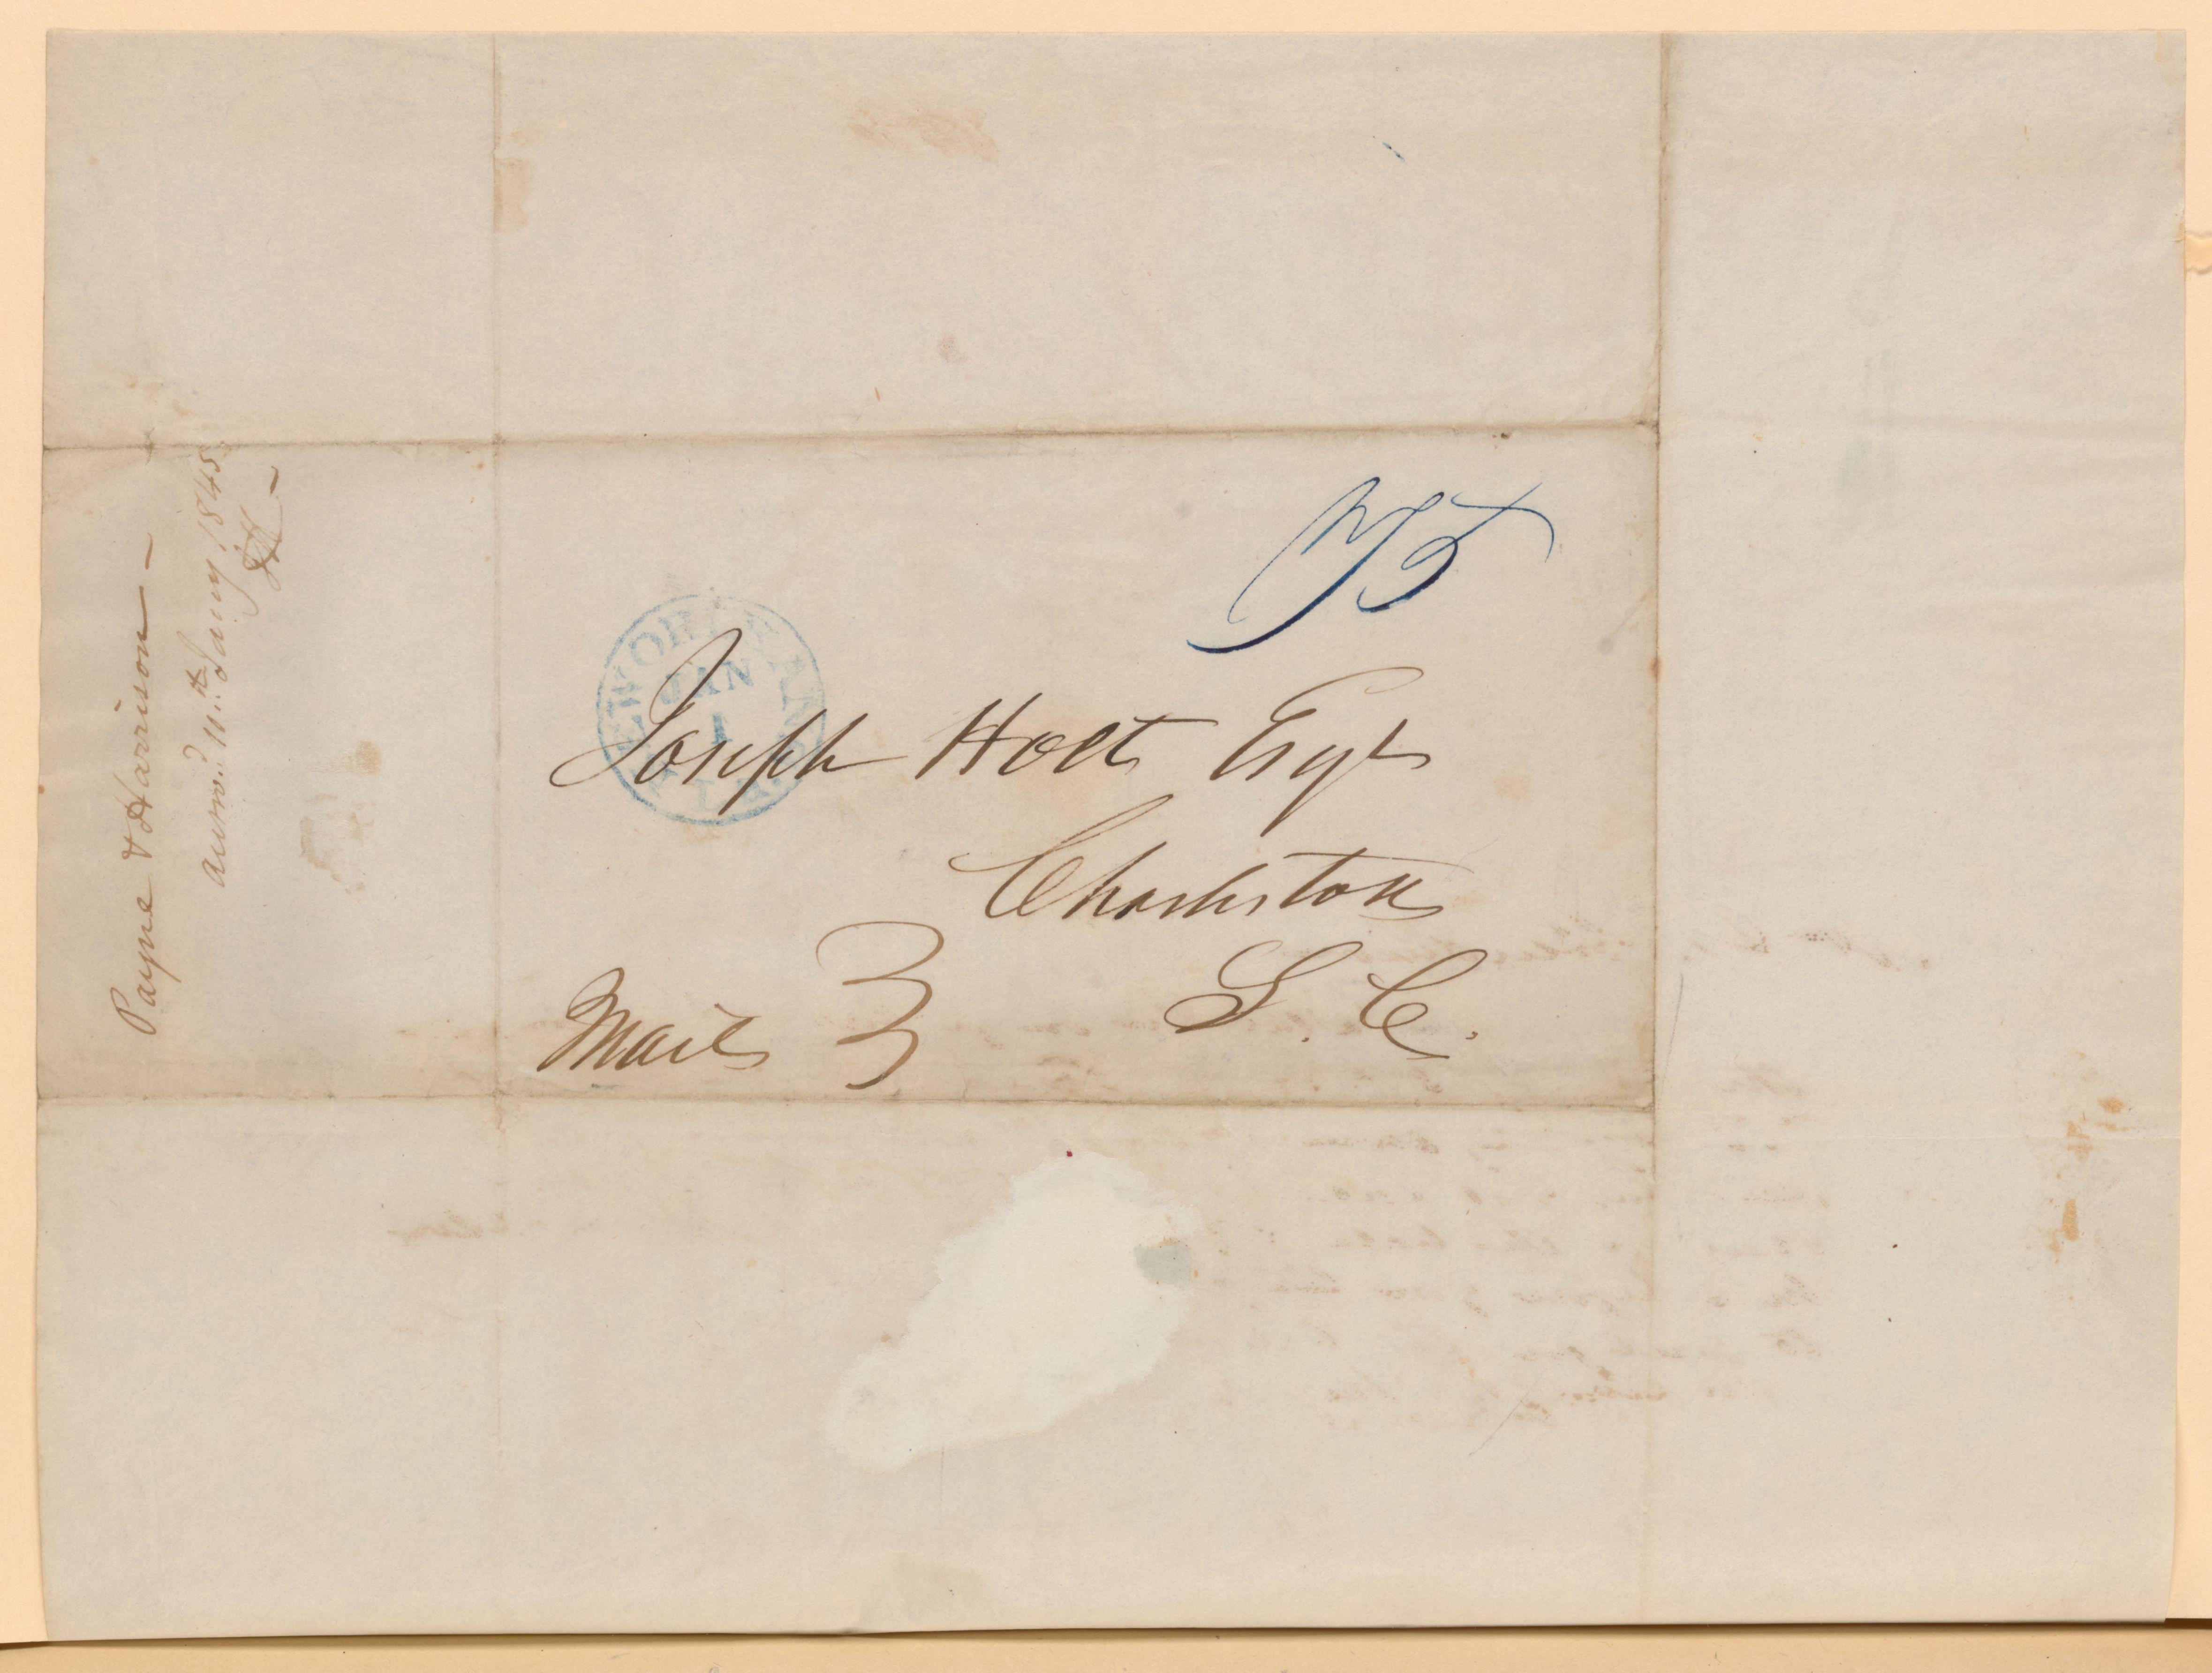 Payne & Harrison –
answd. 11th Jany. 1845
JH –
75
NEW ORLEANS LA.
JAN
1
Joseph Holt Esqr
Charleston
S. C.
Mail 3